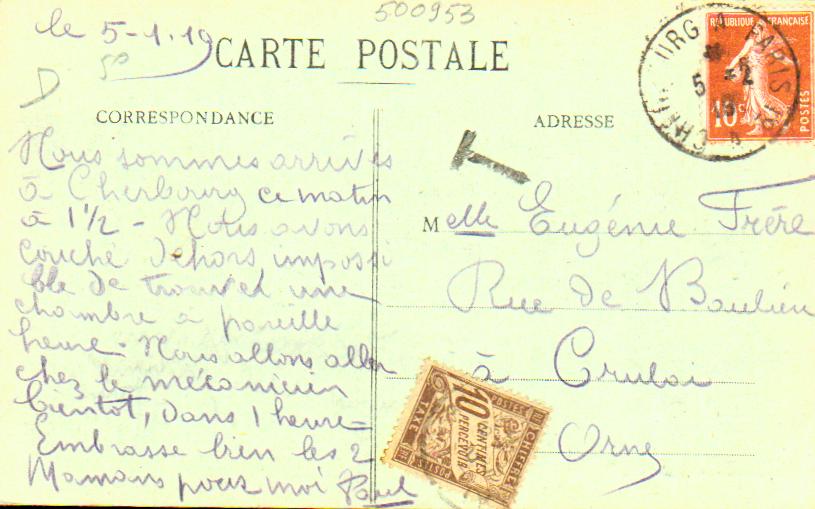 500953
le 5-1-19
CARTE POSTALE
CORRESPONDANCE
ADRESSE
Nous sommes arrivés
à Cherbourg ce matin
à 1 1/2 - Nous avons
couché dehors impossi
ble de trouver une
chambre à pareille
heure - Nous allons aller
chez le mécanicien
bientot, dans 1 heure -
Embrasse bien les 2
Mamans pour moi Paul
T
Melle Eugénie Frère
Rue de Baulieu
à Crulai
Orne
RÉPUBLIQUE FRANÇAISE
10c
POSTES
PARIS
5 -2
19
10
CENTIMES
A PERCEVOIR
POSTES
CHIFFRE
TAXE